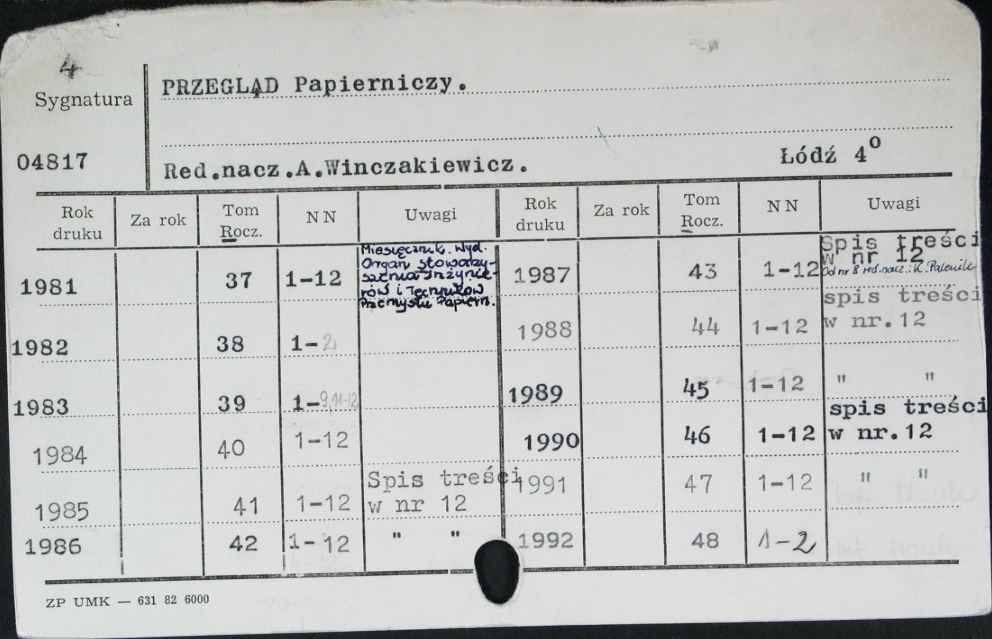 4
Sygnatura
PRZEGLĄD Papierniczy.
04817
Red.nacz.A.Winczakiewicz. Łódź 4⁰
Rok druku Za rok Tom Rocz. NN Uwagi Rok druku Za rok Tom Rocz. NN Uwagi
1981 37 1-12
Miesięcznik. Wyd.
Organ Stowarzy-
szenia Inżynie-
rów i Techników
Przemysłu Papiern.
1982 38 1-2
1983 39 1-9,11-12
1984 40 1-12
1985 41 1-12 Spis treści
w nr 12
1986 42 1-12 " "
1987 43 1-12 Spis treści
w nr 12
Od nr 8 red.nacz.: K.
1988 44 1-12 spis treści
w nr.12
1989 45 1-12 " "
1990 46 1-12 spis treści
w nr.12
1991 47 1-12 " "
1992 48 1-2
ZP UMK — 631 82 6000